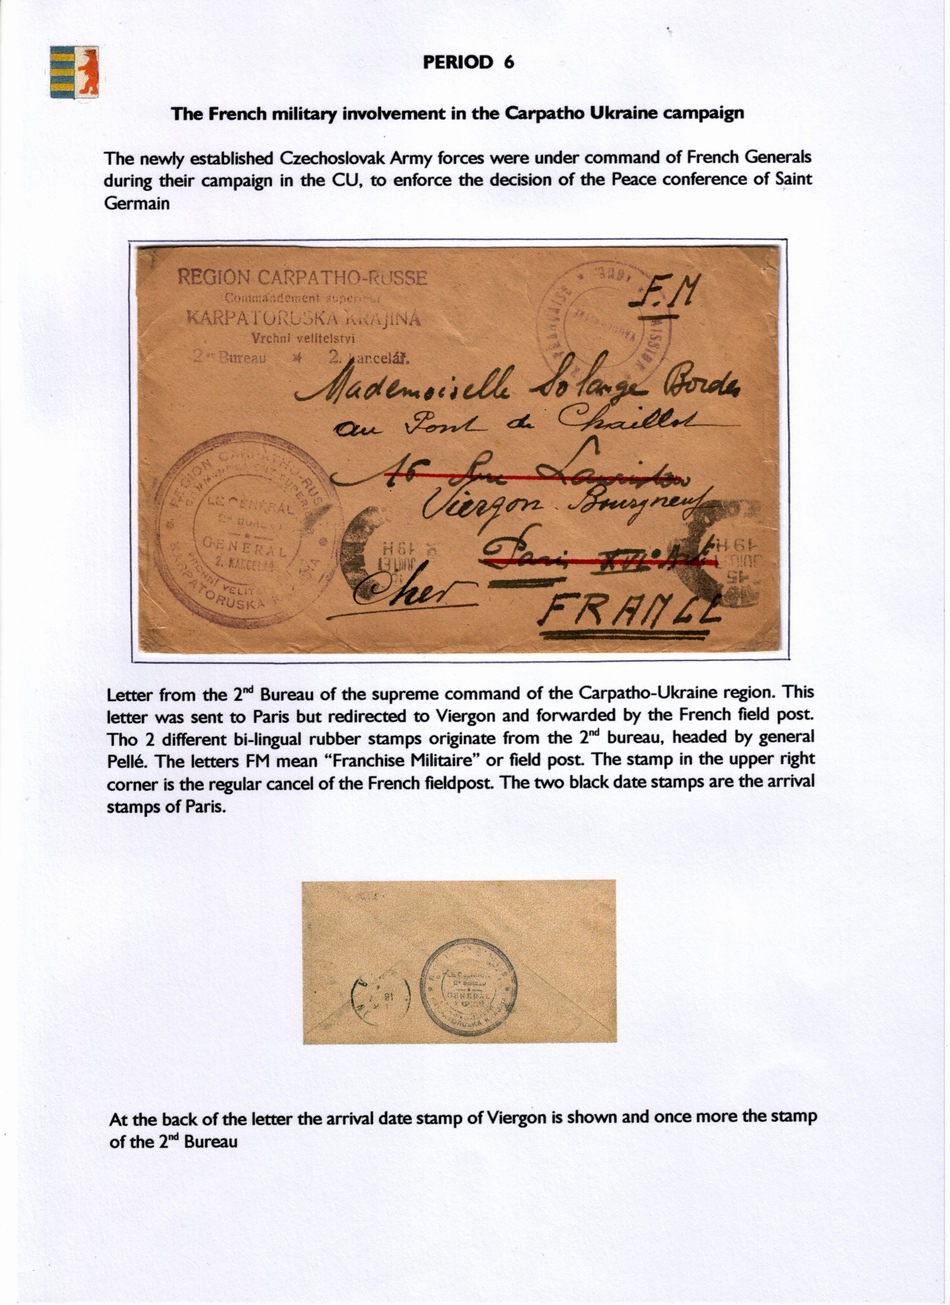 PERIOD 6
The French military involvement in the Carpatho Ukraine campaign
The newly established Czechoslovak Army forces were under command of French Generals
during their campaign in the CU, to enforce the decision of the Peace conference of Saint
Germain
REGION CARPATHO-RUSSE
Commandement superieur
KARPATORUSKA KRAJINA
Vrchní velitelství
2e Bureau * 2. kancelář.
FRANÇAISE * 1909 * MISSION
F.M
Mademoiselle Solange Bordes
au Pont de Chaillot
16 Rue Lauriston
Viergon Bourgneuf
Paris XVIe Ar
Cher
FRANCE
REGION CARPATHO-RUSSE
COMMANDEMENT SUPER
LE GENERAL
2e BUREAU
GENERAL
2. KANCELAŘ
VRCHNI VELIT
KARPATORUSKA
19 H
JUILLET
19 H
15
Letter from the 2nd Bureau of the supreme command of the Carpatho-Ukraine region. This
letter was sent to Paris but redirected to Viergon and forwarded by the French field post.
Tho 2 different bi-lingual rubber stamps originate from the 2nd bureau, headed by general
Pellé. The letters FM mean “Franchise Militaire” or field post. The stamp in the upper right
corner is the regular cancel of the French fieldpost. The two black date stamps are the arrival
stamps of Paris.
2e BUREAU
GENERAL
KARPATORUSKA
18
At the back of the letter the arrival date stamp of Viergon is shown and once more the stamp
of the 2nd Bureau